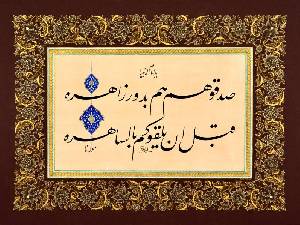 صدقوهم هم بدور زاهره
قبل ان یلقوکم بالساهره
مولانا